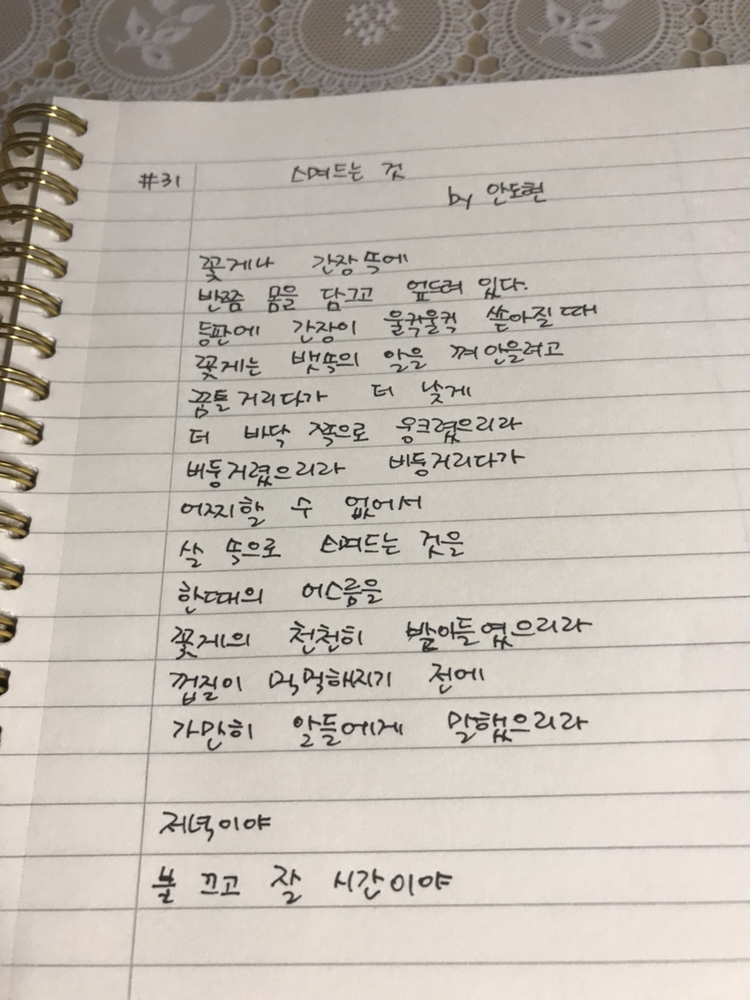 #31 스며드는 것
by 안도현
꽃게나 간장 뚝에
반쯤 몸을 담그고 엎드려 있다.
등판에 간장이 울컥울컥 쏟아질 때
꽃게는 뱃속의 알을 껴안으려고
꿈틀거리다가 더 낮게
더 바닥 쪽으로 웅크렸으리라
버둥거렸으리라 버둥거리다가
어찌할 수 없어서
살 속으로 스며드는 것을
한때의 어스름을
꽃게의 천천히 받아들였으리라
껍질이 먹먹해지기 전에
가만히 알들에게 말했으리라
저녁이야
불 끄고 잘 시간이야